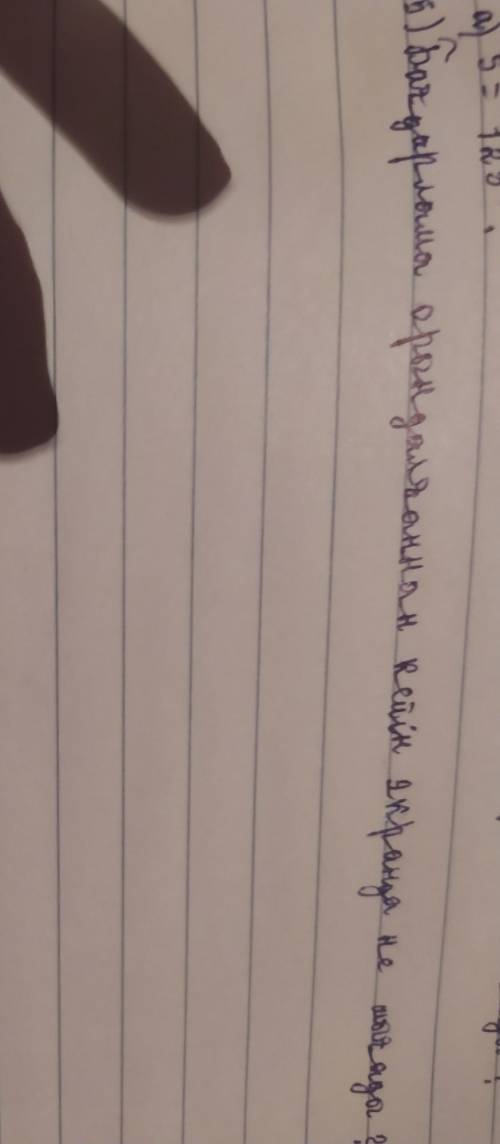 а) S = 123
б) Бағдарлама орындалғаннан кейін экранда не шығады?